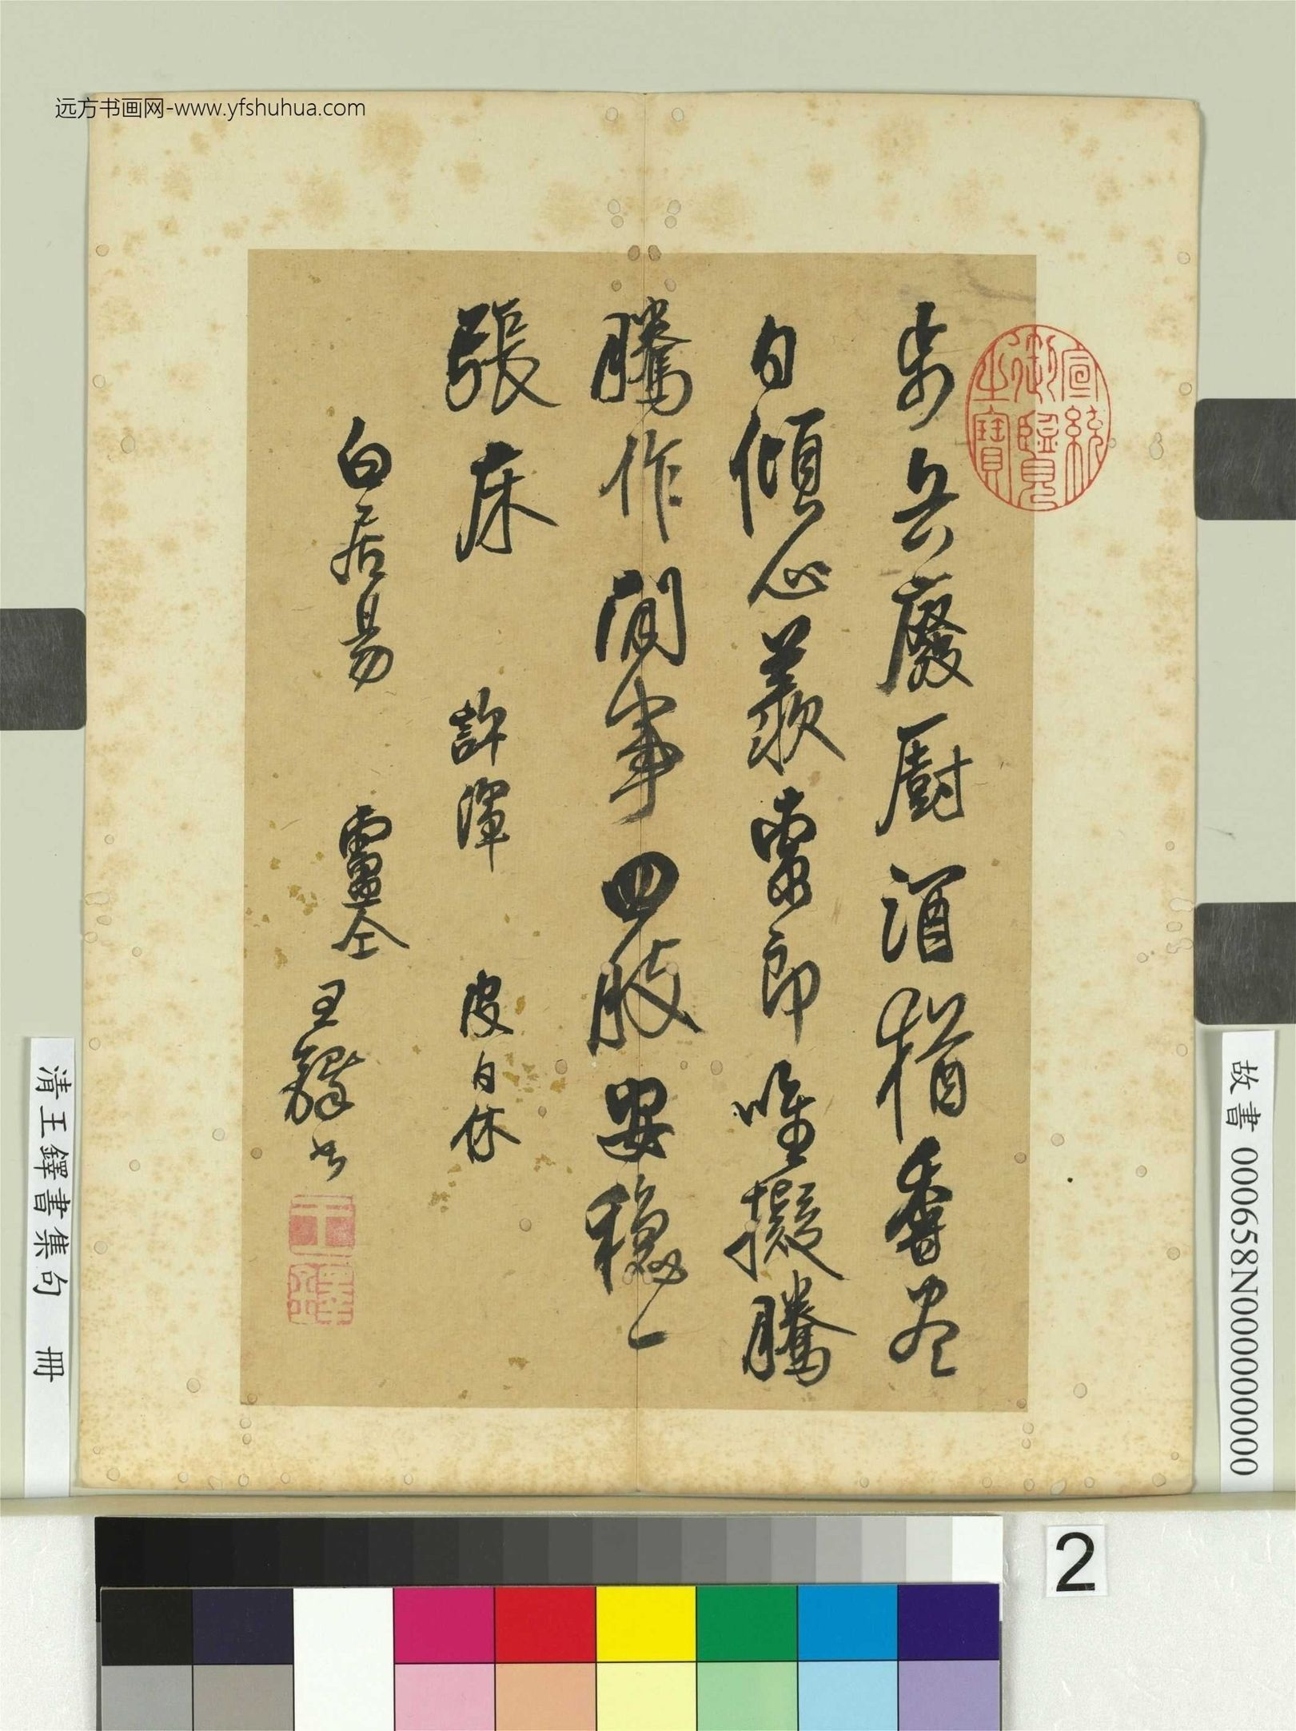 远方书画网-www.yfshuhua.com
宣統
御覽
之寶
步兵廢厨酒猶香尽
日傾心羨索郎唯擬騰
騰作閒事四肢安穩一
張床 許渾 皮日休
白居易 盧仝
王鐸書
故書 000658N000000000
清王鐸書集句 冊
2